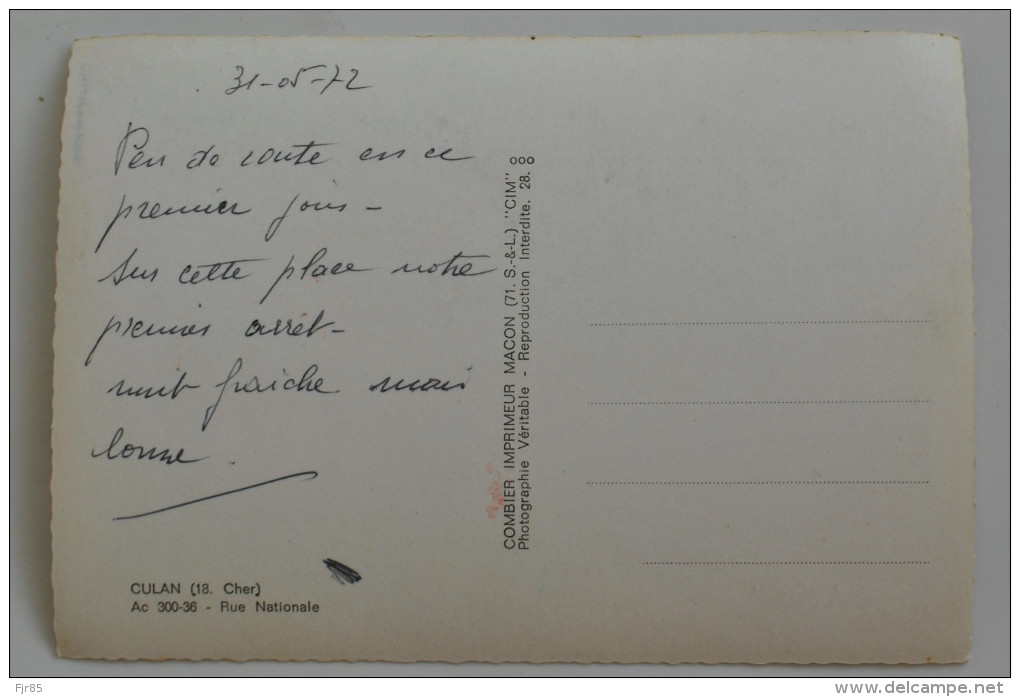 31-05-72
Peu de route en ce
premier jour -
Sur cette place notre
premier arrêt -
nuit fraiche mais
bonne.
CULAN (18. Cher)
Ac 300-36 - Rue Nationale
COMBIER IMPRIMEUR MACON (71. S.-&-L.) "CIM"
Photographie Véritable - Reproduction Interdite. 28.
Fjr85
www.delcampe.net